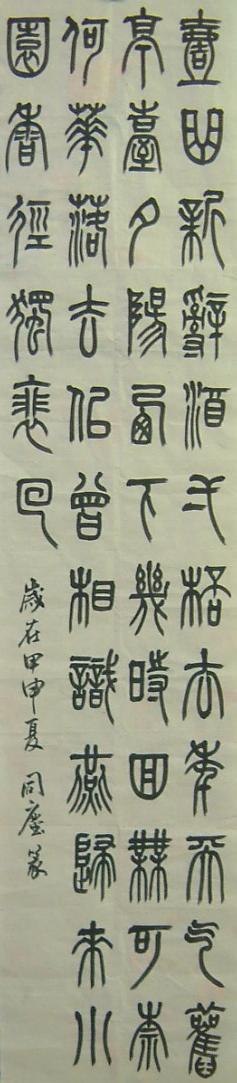 壹曲新辭酒弌桮去年天气舊
亭臺夕陽西下幾時回無可奈
何華落去佀曾相識燕歸來小
園香徑獨裵回
歲在甲申夏 同塵篆